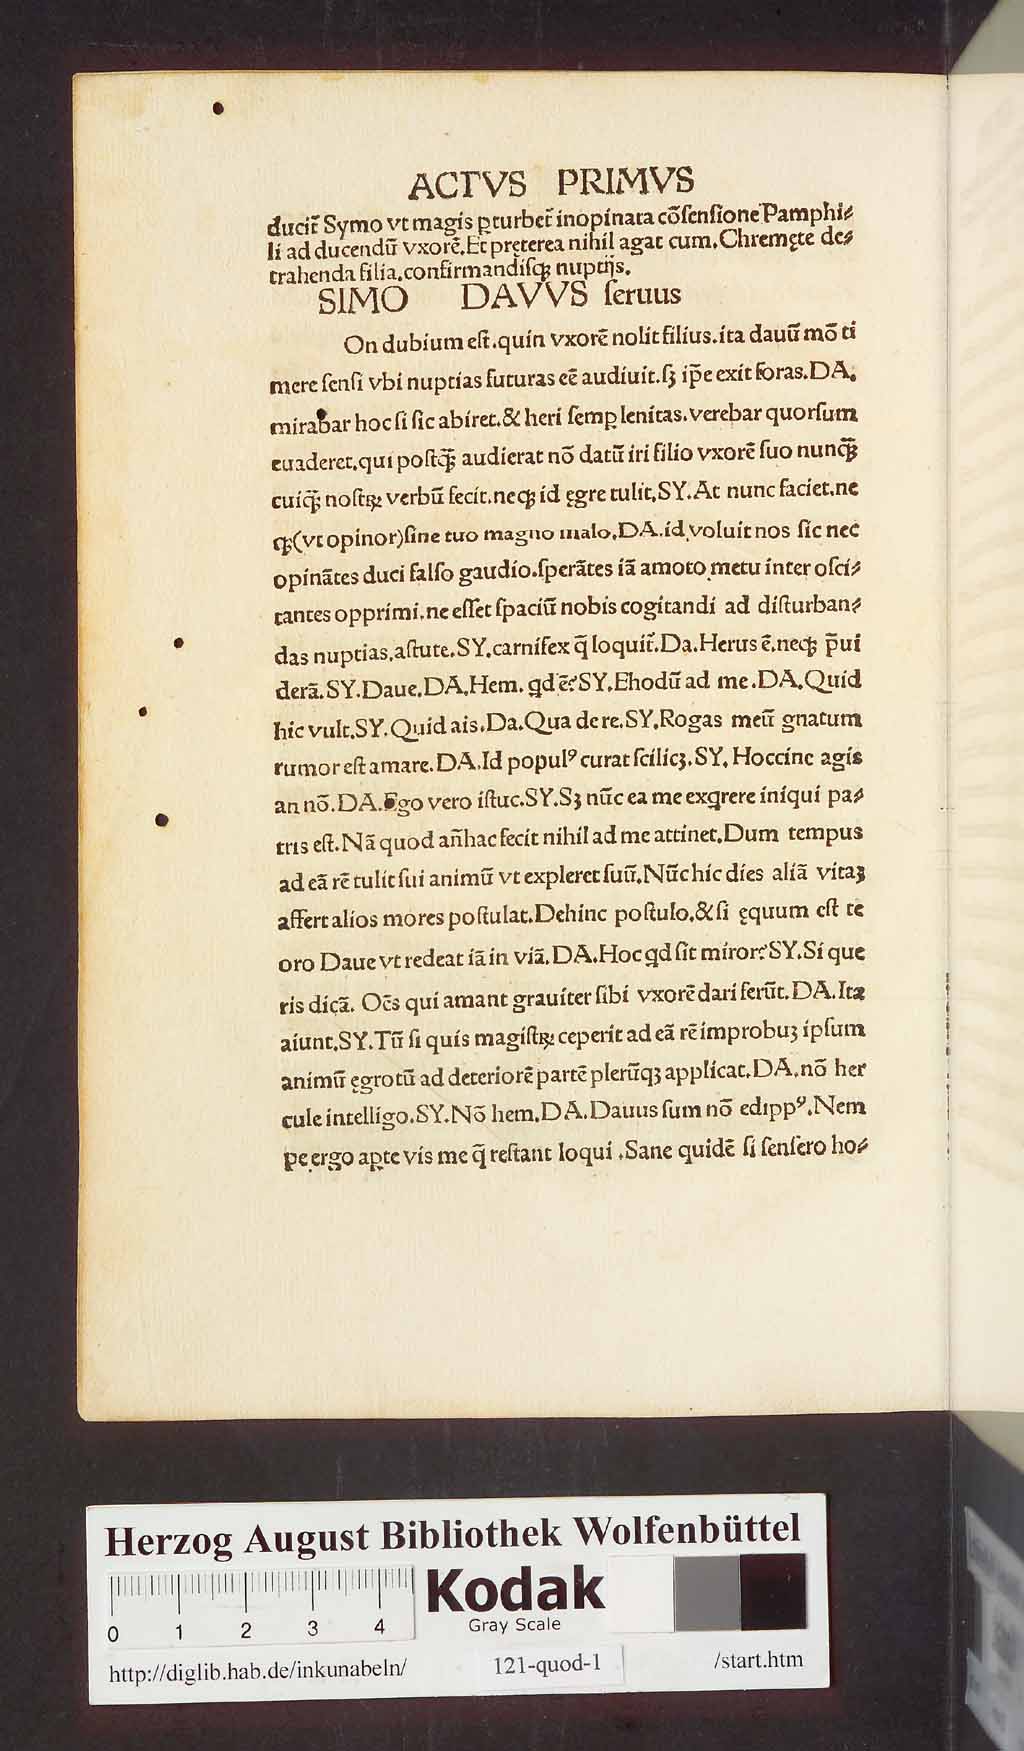 ACTVS PRIMVS
ducit᷑ Sẏmo vt magis ꝑturbet᷑ inopinata cōſenſione Pamphi⸗
li ad ducendū vxorē. Et pręterea nihil agat cum. Chremęte de⸗
trahenda filia. confirmandiſqꝫ nuptijs.
SIMO DAVVS ſeruus
On dubium eſt. quin vxorē nolit filius. ita dauū mō ti
mere ſenſi vbi nuptias futuras eē audiuit. ſꝫ ip̄e exit foras. DA.
mirabar hoc ſi ſic abiret. & heri ſemꝑ lenitas. verebar quorſum
euaderet. qui poſtꝙ̄ audierat nō datū iri filio vxorē ſuo nunꝙ̄
cuiꝙ̄ noſtꝝ verbū fecit. neqꝫ id ęgre tulit. SY. At nunc faciet. ne
qꝫ (vt opinor) ſine tuo magno malo. DA. id voluit nos ſic nec
opinātes duci falſo gaudio. ſperātes iā amoto metu inter oſci⸗
tantes opprimi. ne eſſet ſpaciū nobis cogitandi ad diſturban⸗
das nuptias. aſtute. SY. carnifex q̄ loquit᷑. Da. Herus ē. neqꝫ p̄ui
derā. SY. Daue. DA. Hem. qd ē? SY. Ehodū ad me. DA. Quid
hic vult. SY. Quid ais. Da. Qua de re. SY. Rogas meū gnatum
rumor eſt amare. DA. Id populꝰ curat ſcilicꝫ. SY. Hoccine agis
an nō. DA. Ego vero iſtuc. SY. Sꝫ nūc ea me exqrere iniqui pa⸗
tris eſt. Nā quod an̄hac fecit nihil ad me attinet. Dum tempus
ad eā rē tulit ſui animū vt expleret ſuū. Nūc hic dies aliā vitaꝫ
affert alios mores poſtulat. Dehinc poſtulo. & ſi ęquum eſt te
oro Daue vt redeat iā in viā. DA. Hoc qd ſit miror? SY. Si que
ris dicā. Oēs qui amant grauiter ſibi vxorē dari ferūt. DA. Ita
aiunt. SY. Tū ſi quis magiſtꝝ ceperit ad eā rē improbuꝫ ipſum
animū ęgrotū ad deteriorē partē plerūqꝫ applicat. DA. nō her
cule intelligo. SY. Nō hem. DA. Dauus ſum nō edippꝰ. Nem
pe ergo aꝑte vis me q̄ reſtant loqui. Sane quidē ſi ſenſero ho⸗
Herzog August Bibliothek Wolfenbüttel
Kodak
Gray Scale
0 1 2 3 4
http://diglib.hab.de/inkunabeln/ 121-quod-1 /start.htm